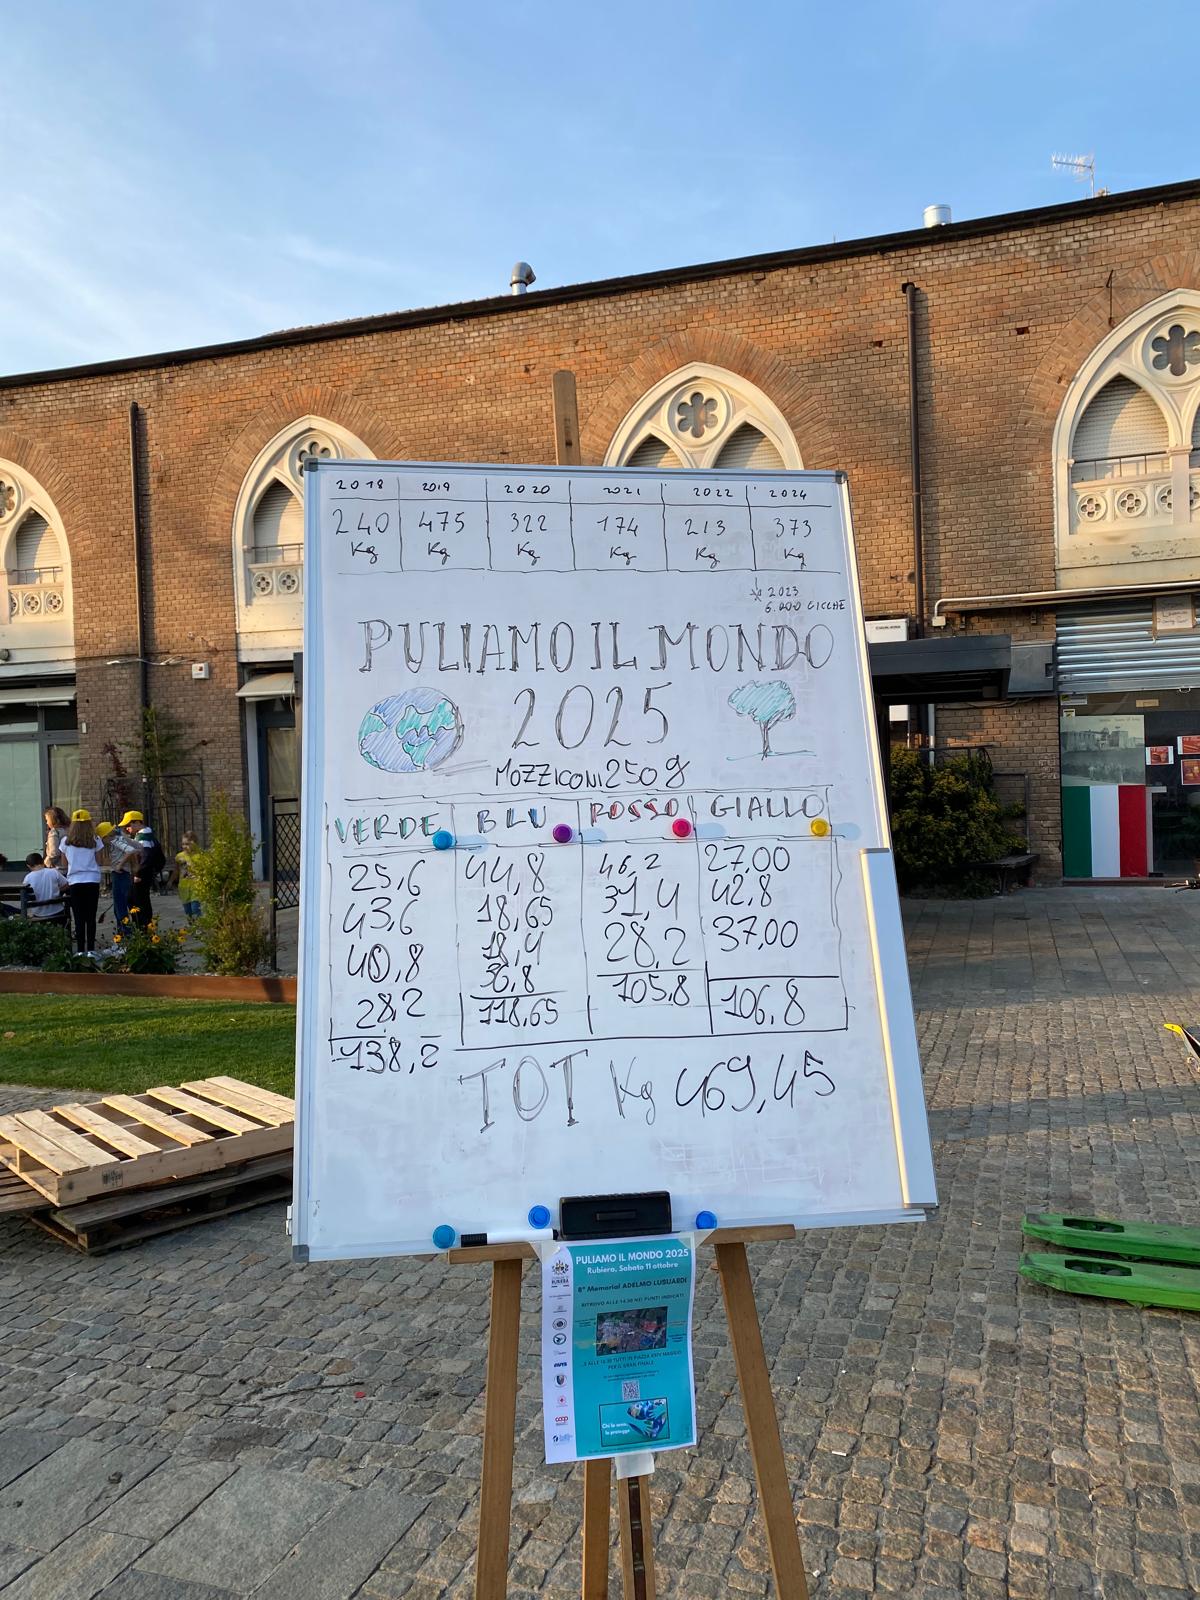 2018 2019 2020 2021 2022 2024
240 475 322 174 213 373
Kg Kg Kg Kg Kg Kg
* 2023
6.000 CICCHE
PULIAMO IL MONDO
2025
MOZZICONI 250 g
VERDE BLU ROSSO GIALLO
25,6 44,8 46,2 27,00
43,6 18,65 31,4 42,8
40,8 18,4 28,2 37,00
28,2 36,8
138,2 118,65 105,8 106,8
TOT Kg 469,45
PULIAMO IL MONDO 2025
Rubiera, Sabato 11 ottobre
8° Memorial ADELMO LUSUARDI
RITROVO ALLE 14.30 NEI PUNTI INDICATI
TUTTI IN PIAZZA XXIV MAGGIO
PER IL GRAN FINALE
Chi la ama,
la protegge
RUBIERA
coop